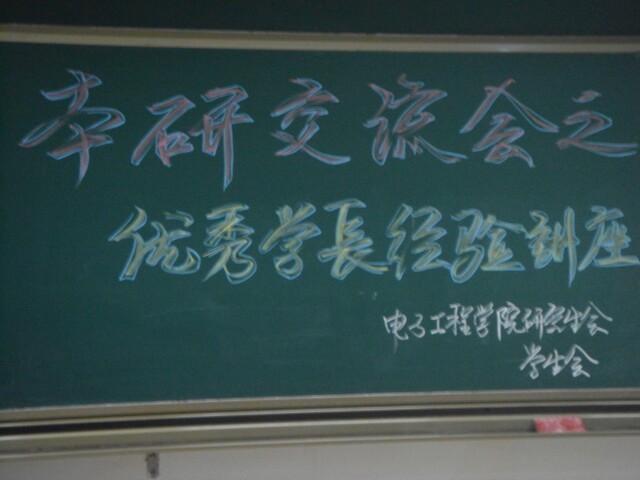 本研交流会之
优秀学長经验讲座
电子工程学院研究生会
学生会